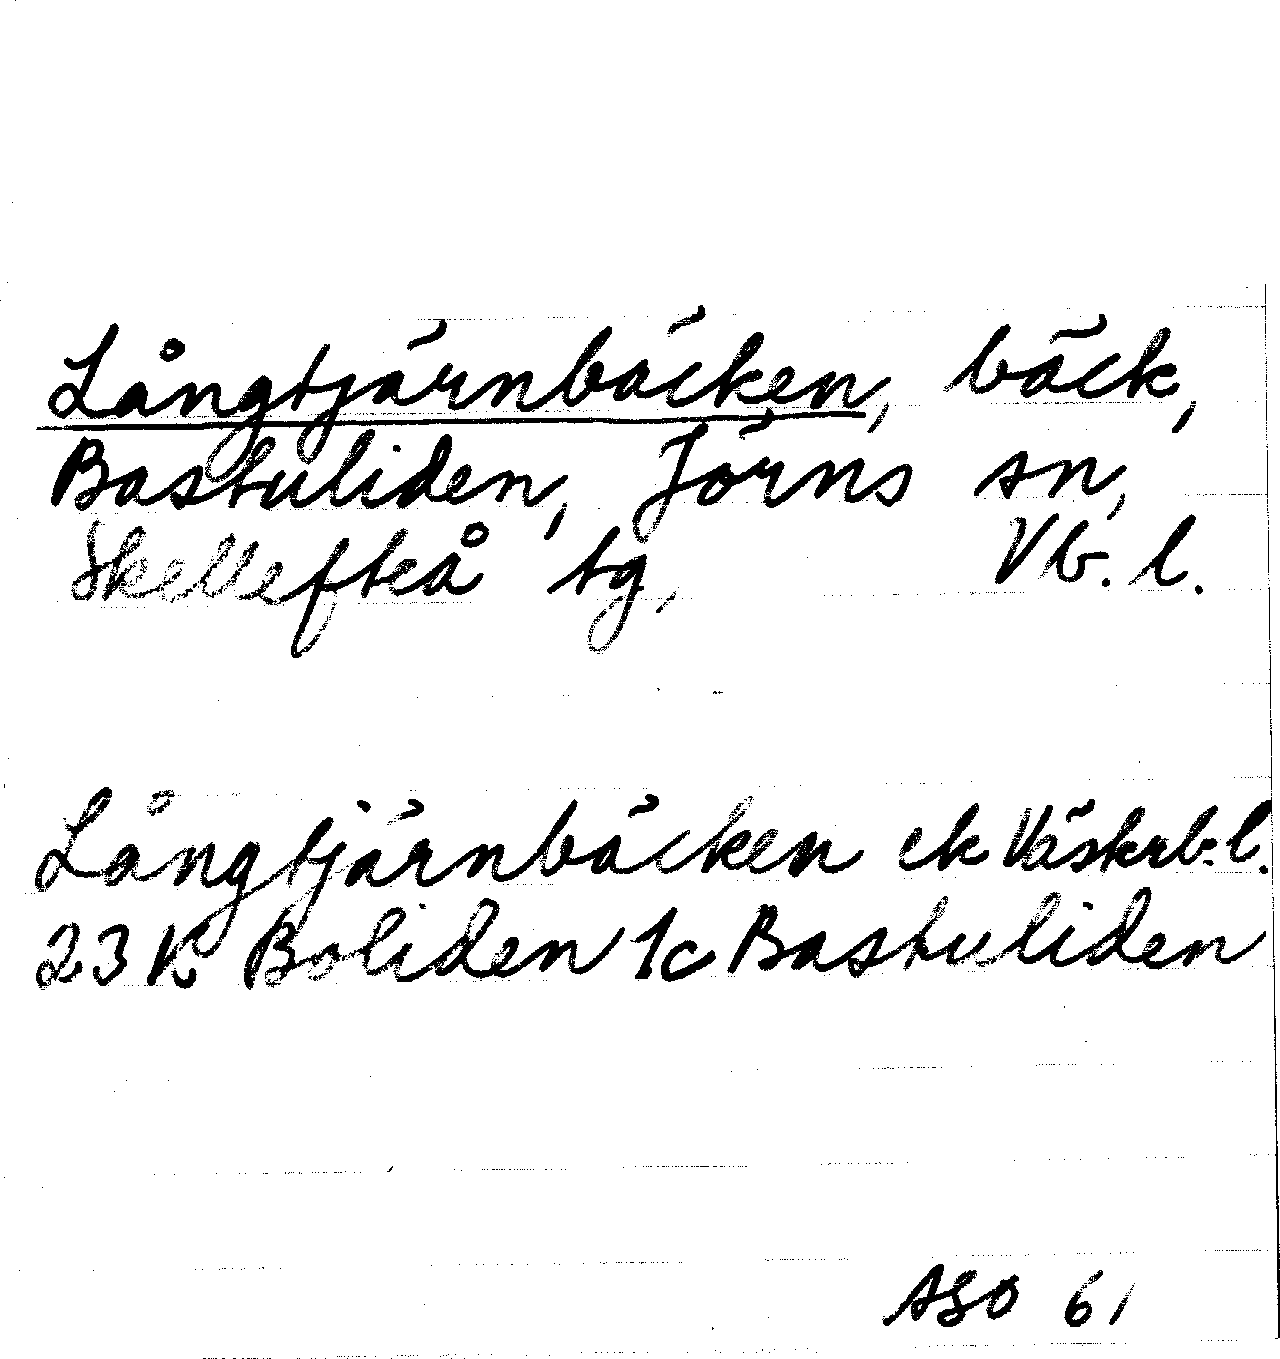 Långtjärnbäcken, bäck,
Bastuliden, Jörns sn,
Skellefteå tg, Vb. l.
Långtjärnbäcken ek Västerb. l.
23 K Boliden 1c Bastuliden
ASO 61